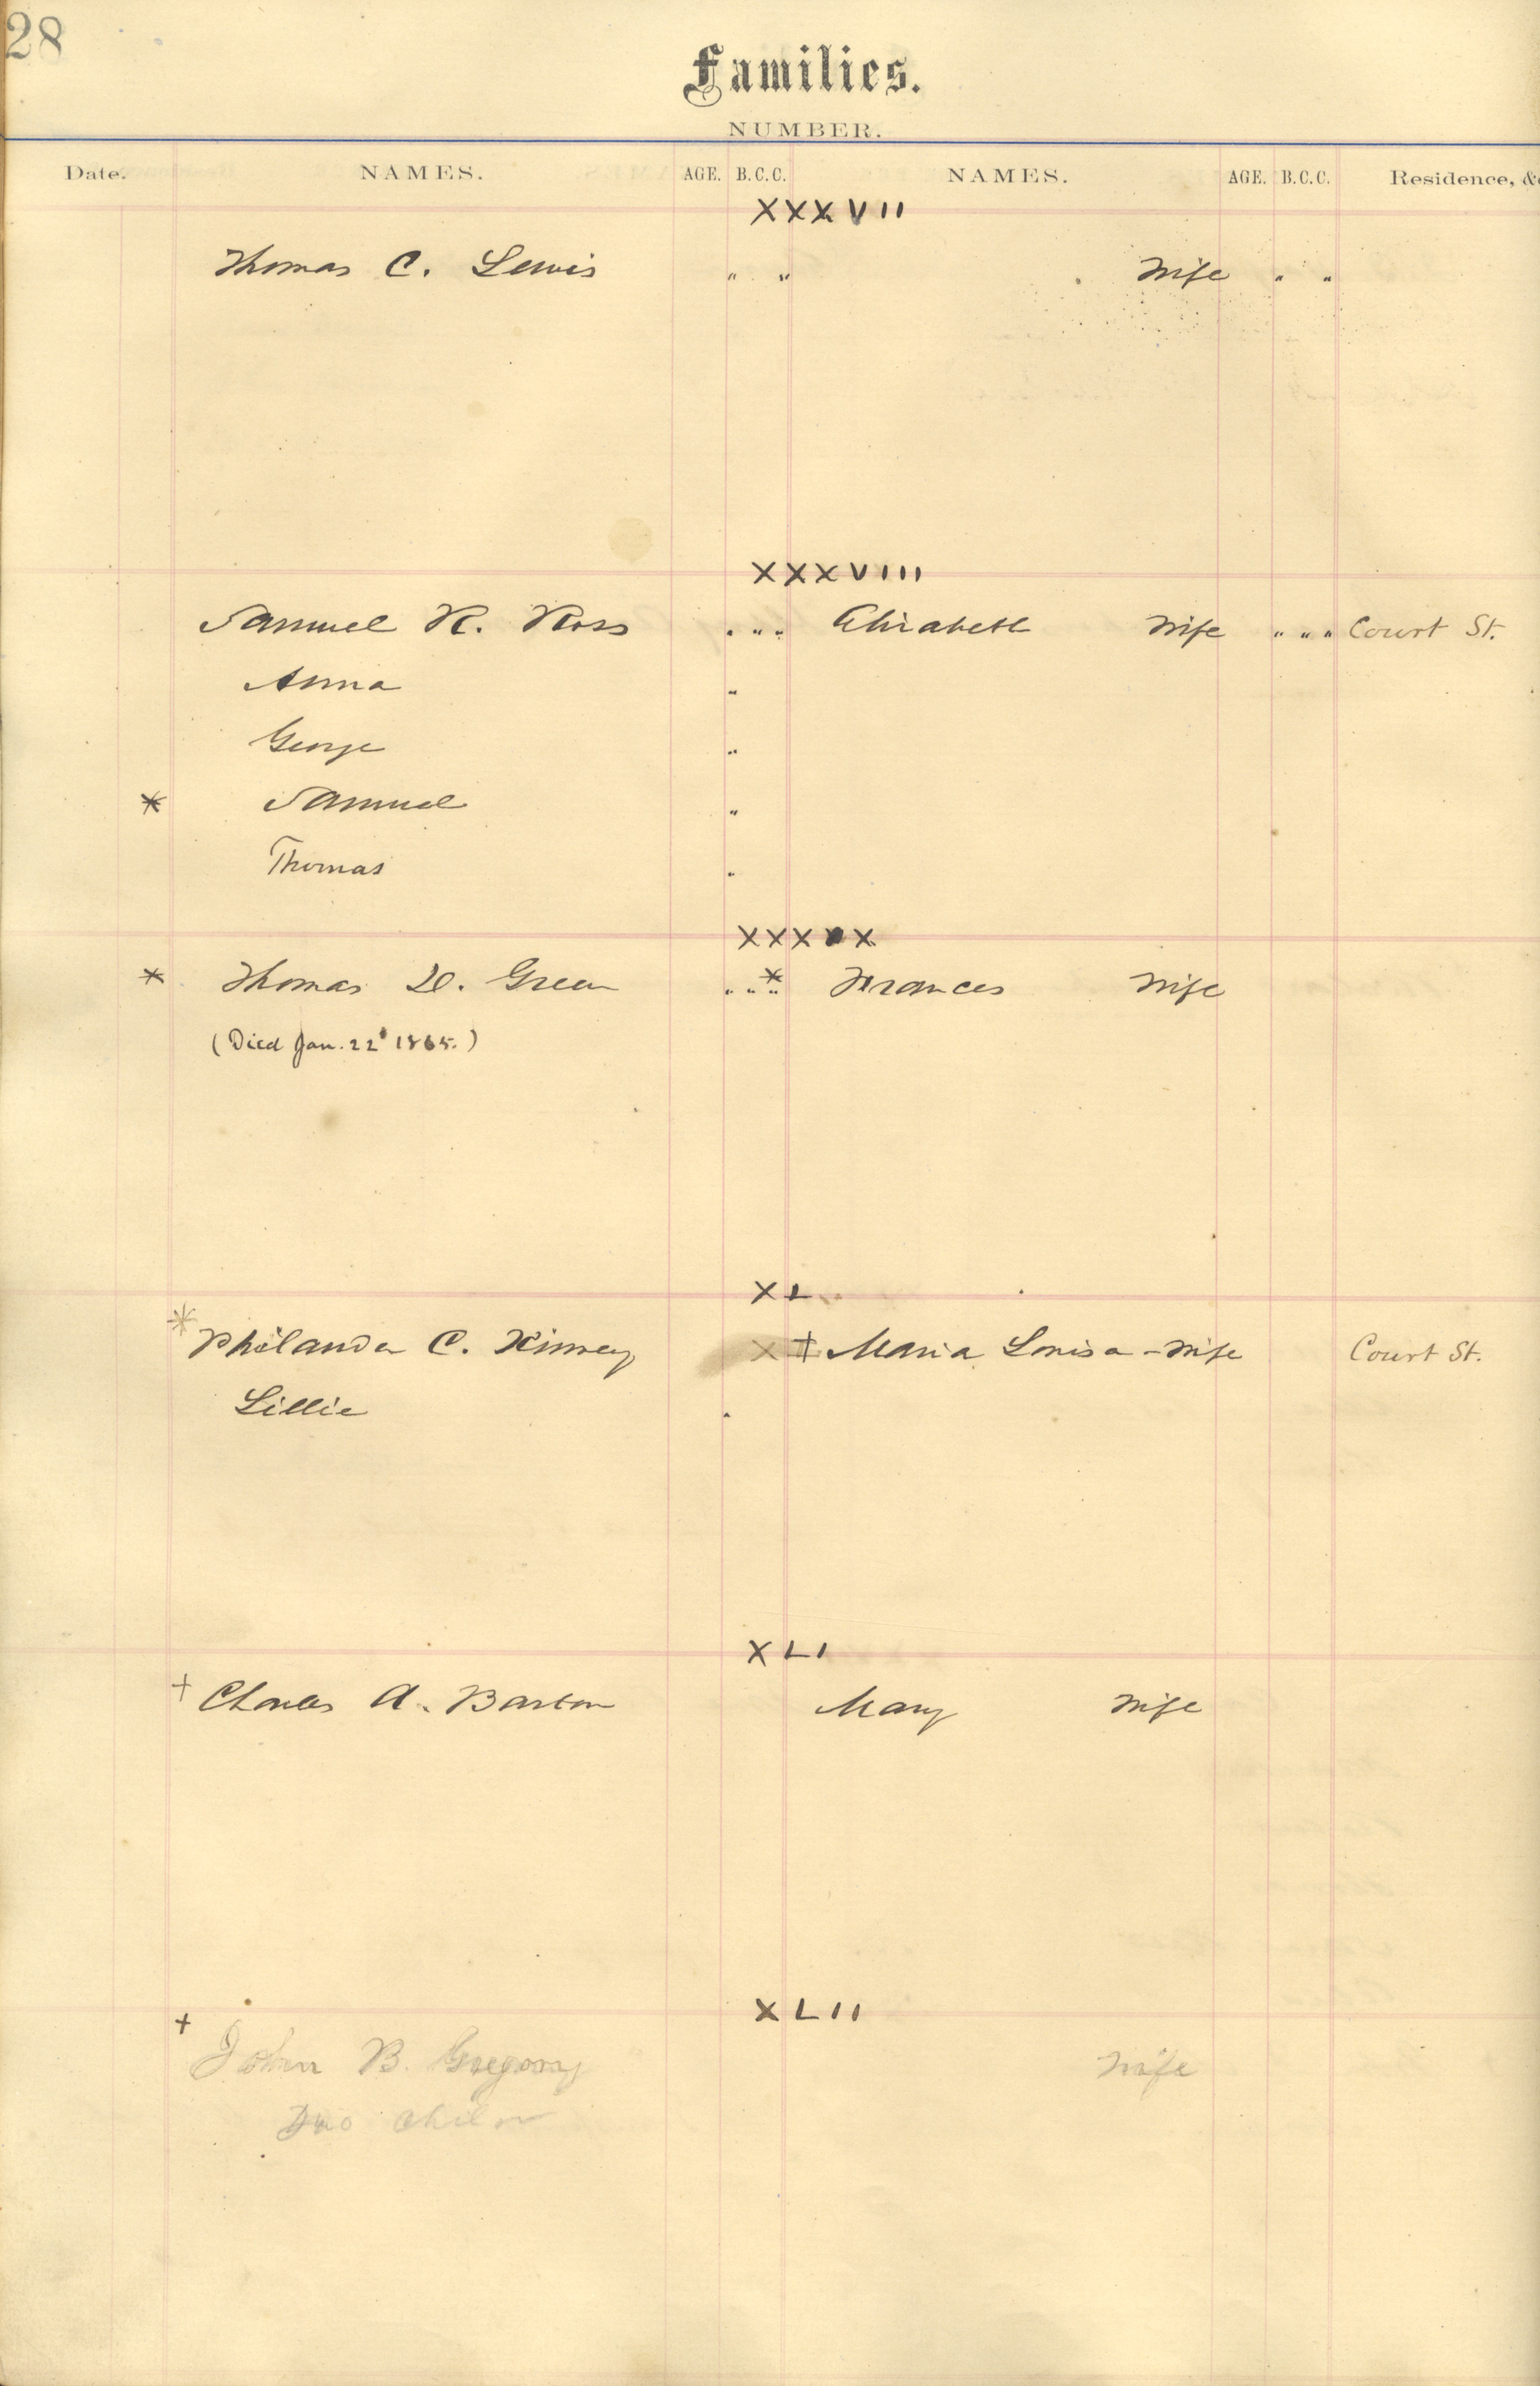 28
Families.
NUMBER.
Date. NAMES. AGE. B.C.C. NAMES. AGE. B.C.C. Residence, &
XXXVII
Thomas C. Lewis " " Wife " "
XXXVIII
Samuel R. Ross " " " Elizabeth Wife " " " Court St.
Anna "
George "
* Samuel "
Thomas "
XXXIX
* Thomas D. Green " " " * Frances Wife
(Died Jan. 22d 1865.)
XL
* Philander C. Kinney × † Maria Louisa - Wife Court St.
Lillie "
XLI
+ Charles A. Barton Mary Wife
XLII
+ John B. Gregory Wife
Two